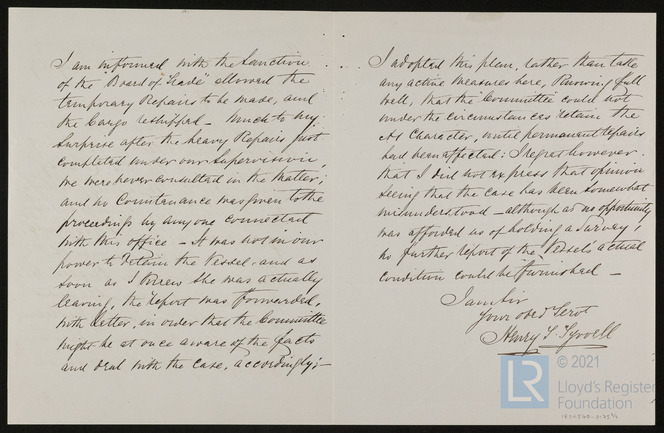 I am informed with the Sanction
of the "Board of Trade" allowed the
temporary Repairs to be made, and
the Cargo reshipped - Much to my
Surprise after the heavy Repairs just
completed under our Supervision,
we were never consulted in the matter;
and no Countenance was given to the
proceedings by any one connected
with this office - It was not in our
power to retain the Vessel, and as
soon as I knew She was actually
leaving, the report was forwarded,
with letter, in order that the Committee
might be at once aware of the facts
and deal with the case, accordingly;-
I adopted this plan, rather than take
any active measures here, Knowing full
well, that the Committee could not
under the circumstances retain the
A1 Character, until permanent repairs
had been affected: I regret however
that I did not express that opinion
seeing that the case has been somewhat
misunderstood - although as no opportunity
was afforded us of holding a Survey,
no further report of the Vessels actual
condition could be furnished -
I am Sir
Your obed Servt
Henry
© 2021
LR
Lloyd's Register
Foundation